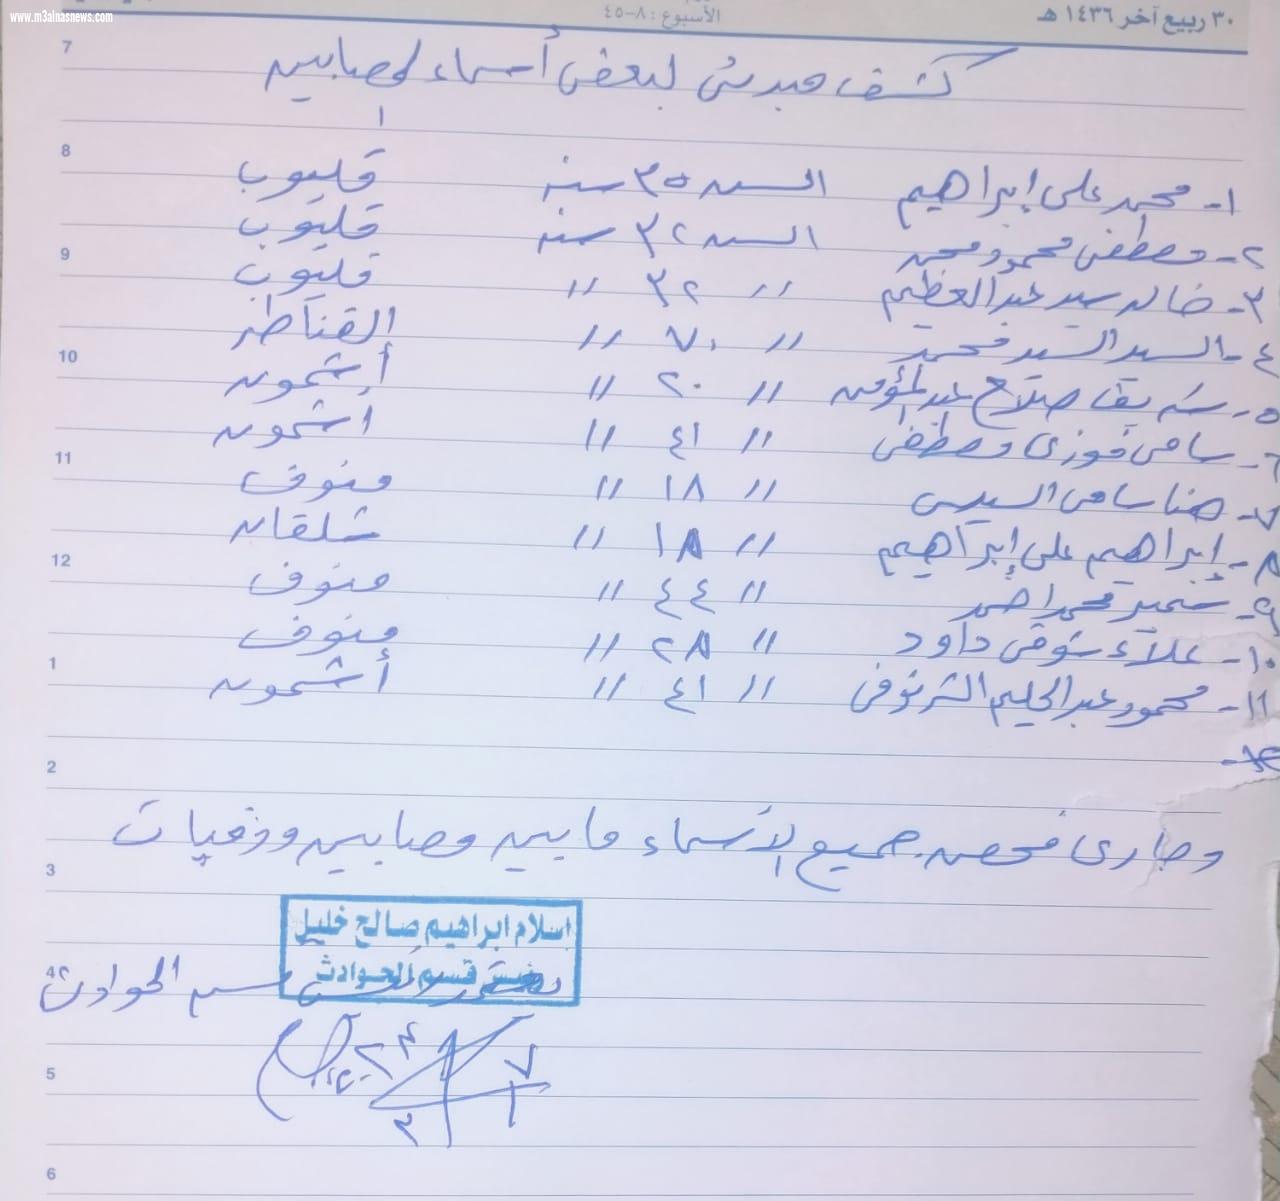 www.m3alnasnews.com
٣٠ ربيع آخر ١٤٣٦ هـ الأسبوع: ٨-٤٥
7
كشف مبدئى لبعض أسماء المصابين
8
١- محمد على إبراهيم السن ٣٥ سنه قليوب
٢- مصطفى محمود محمد السن ٣٢ سنه قليوب
9
٣- خالد سيد عبد العظيم // ٣٢ // قليوب
٤- السيد السيد محمد // ٧٠ // القناطر
10
٥- صلاح عبد المؤمن // ٢٠ // أشمون
٦- سامى فوزى مصطفى // ٤١ // أشمون
11
٧- هنا سامى // ١٨ // منوف
٨- إبراهيم على إبراهيم // ١٨ // شلقان
12
٩- سمير محمد احمد // ٤٤ // منوف
١٠- علاء شوقى داود // ٢٨ // منوف
1
١١- محمود عبد الحليم الشرنوفى // ٤١ // أشمون
2
وجارى فحص جميع الأسماء ما بين مصابين ووفيات
3
اسلام ابراهيم صالح خليل
رئيس قسم الحوادث
4
قسم الحوادث
5
6